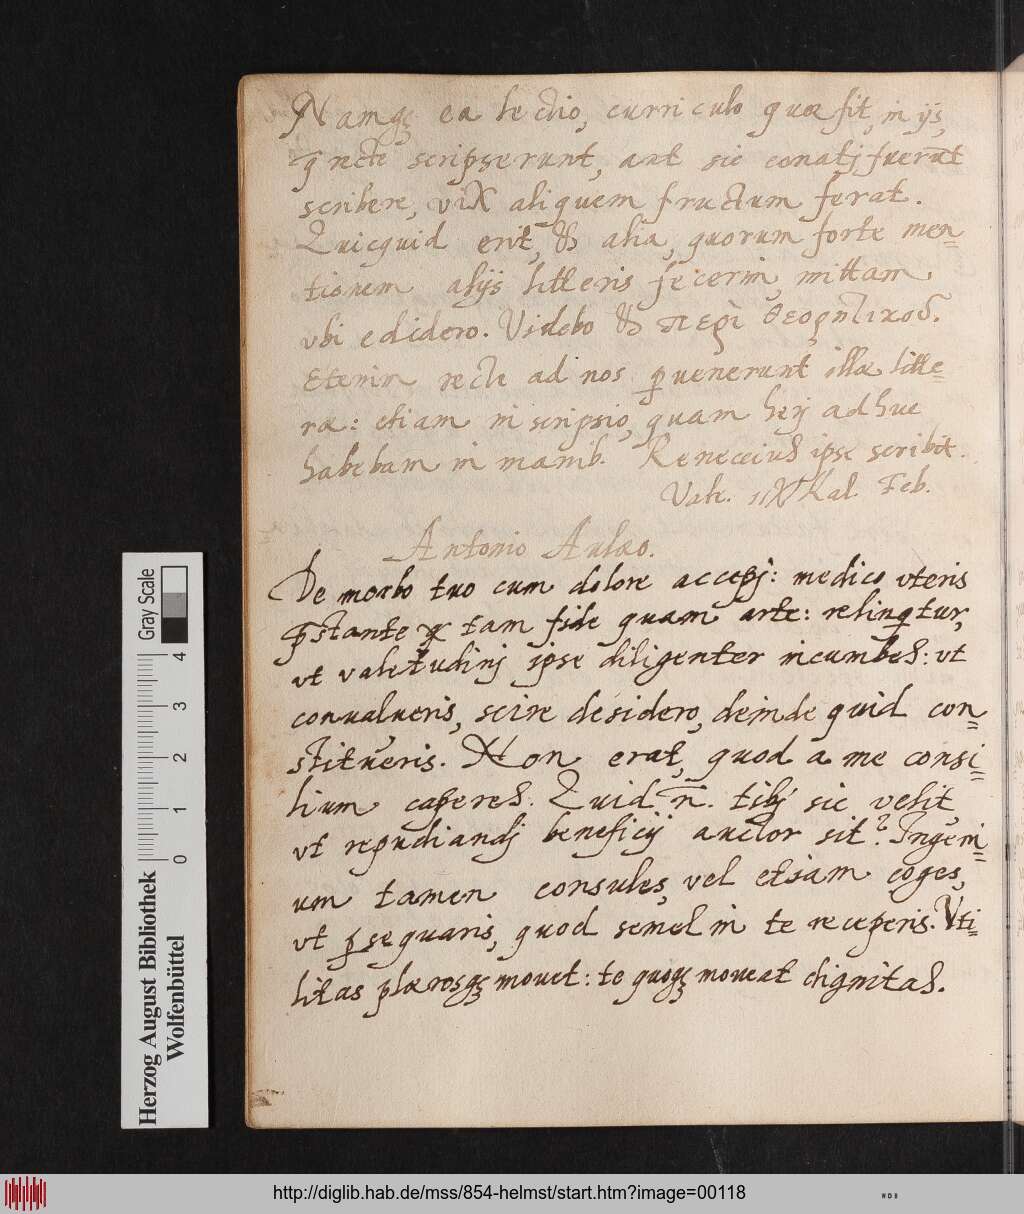 Namq; ea lectio, curriculo quæ fit, in ijs,
q recte scripserunt, aut sic conatj fuerūt
scribere, vix aliquem fructum ferat.
Quicquid erit, & alia, quorum forte men=
tionem alijs litteris fecerim, mittam
vbi edidero. Videbo & περὶ θεορητικοῦ.
Etenim recte ad nos puenerunt illæ litte=
ræ: etiam inscripsio, quam herj adhuc
habebam in manib. Reneccius ipse scribit.
Vale. Kal. Feb.
Antonio Aulæo.
De morbo tuo cum dolore accepj: medico vteris
pstante tam fide quam arte: relinqtur,
vt valetudinj ipse diligenter incumbes: vt
conualueris, scire desidero, deinde quid con=
stitueris. Non erat, quod a me consi=
lium caperes. Quid n̄. tibj sic velit,
vt repudiandj beneficij auctor sit? Ingeni=
um tamen consules, vel etiam coges,
vt psequaris, quod semel in te receperis. Vti=
litas plærosq; mouet: te quoq; moueat dignitas.
Gray Scale
0 1 2 3 4
Herzog August Bibliothek
Wolfenbüttel
http://diglib.hab.de/mss/854-helmst/start.htm?image=00118